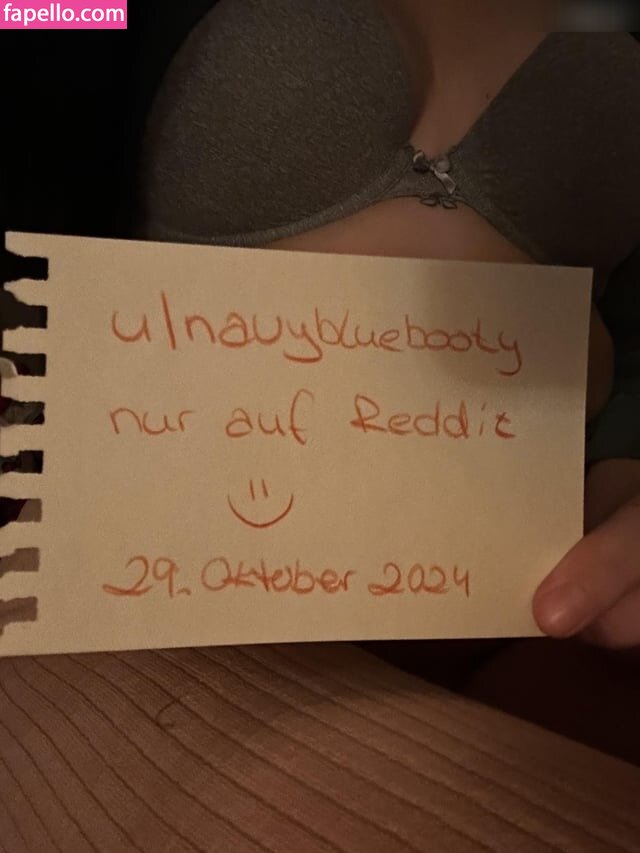 fapello.com
u/navybluebooty
nur auf Reddit
29. Oktober 2024